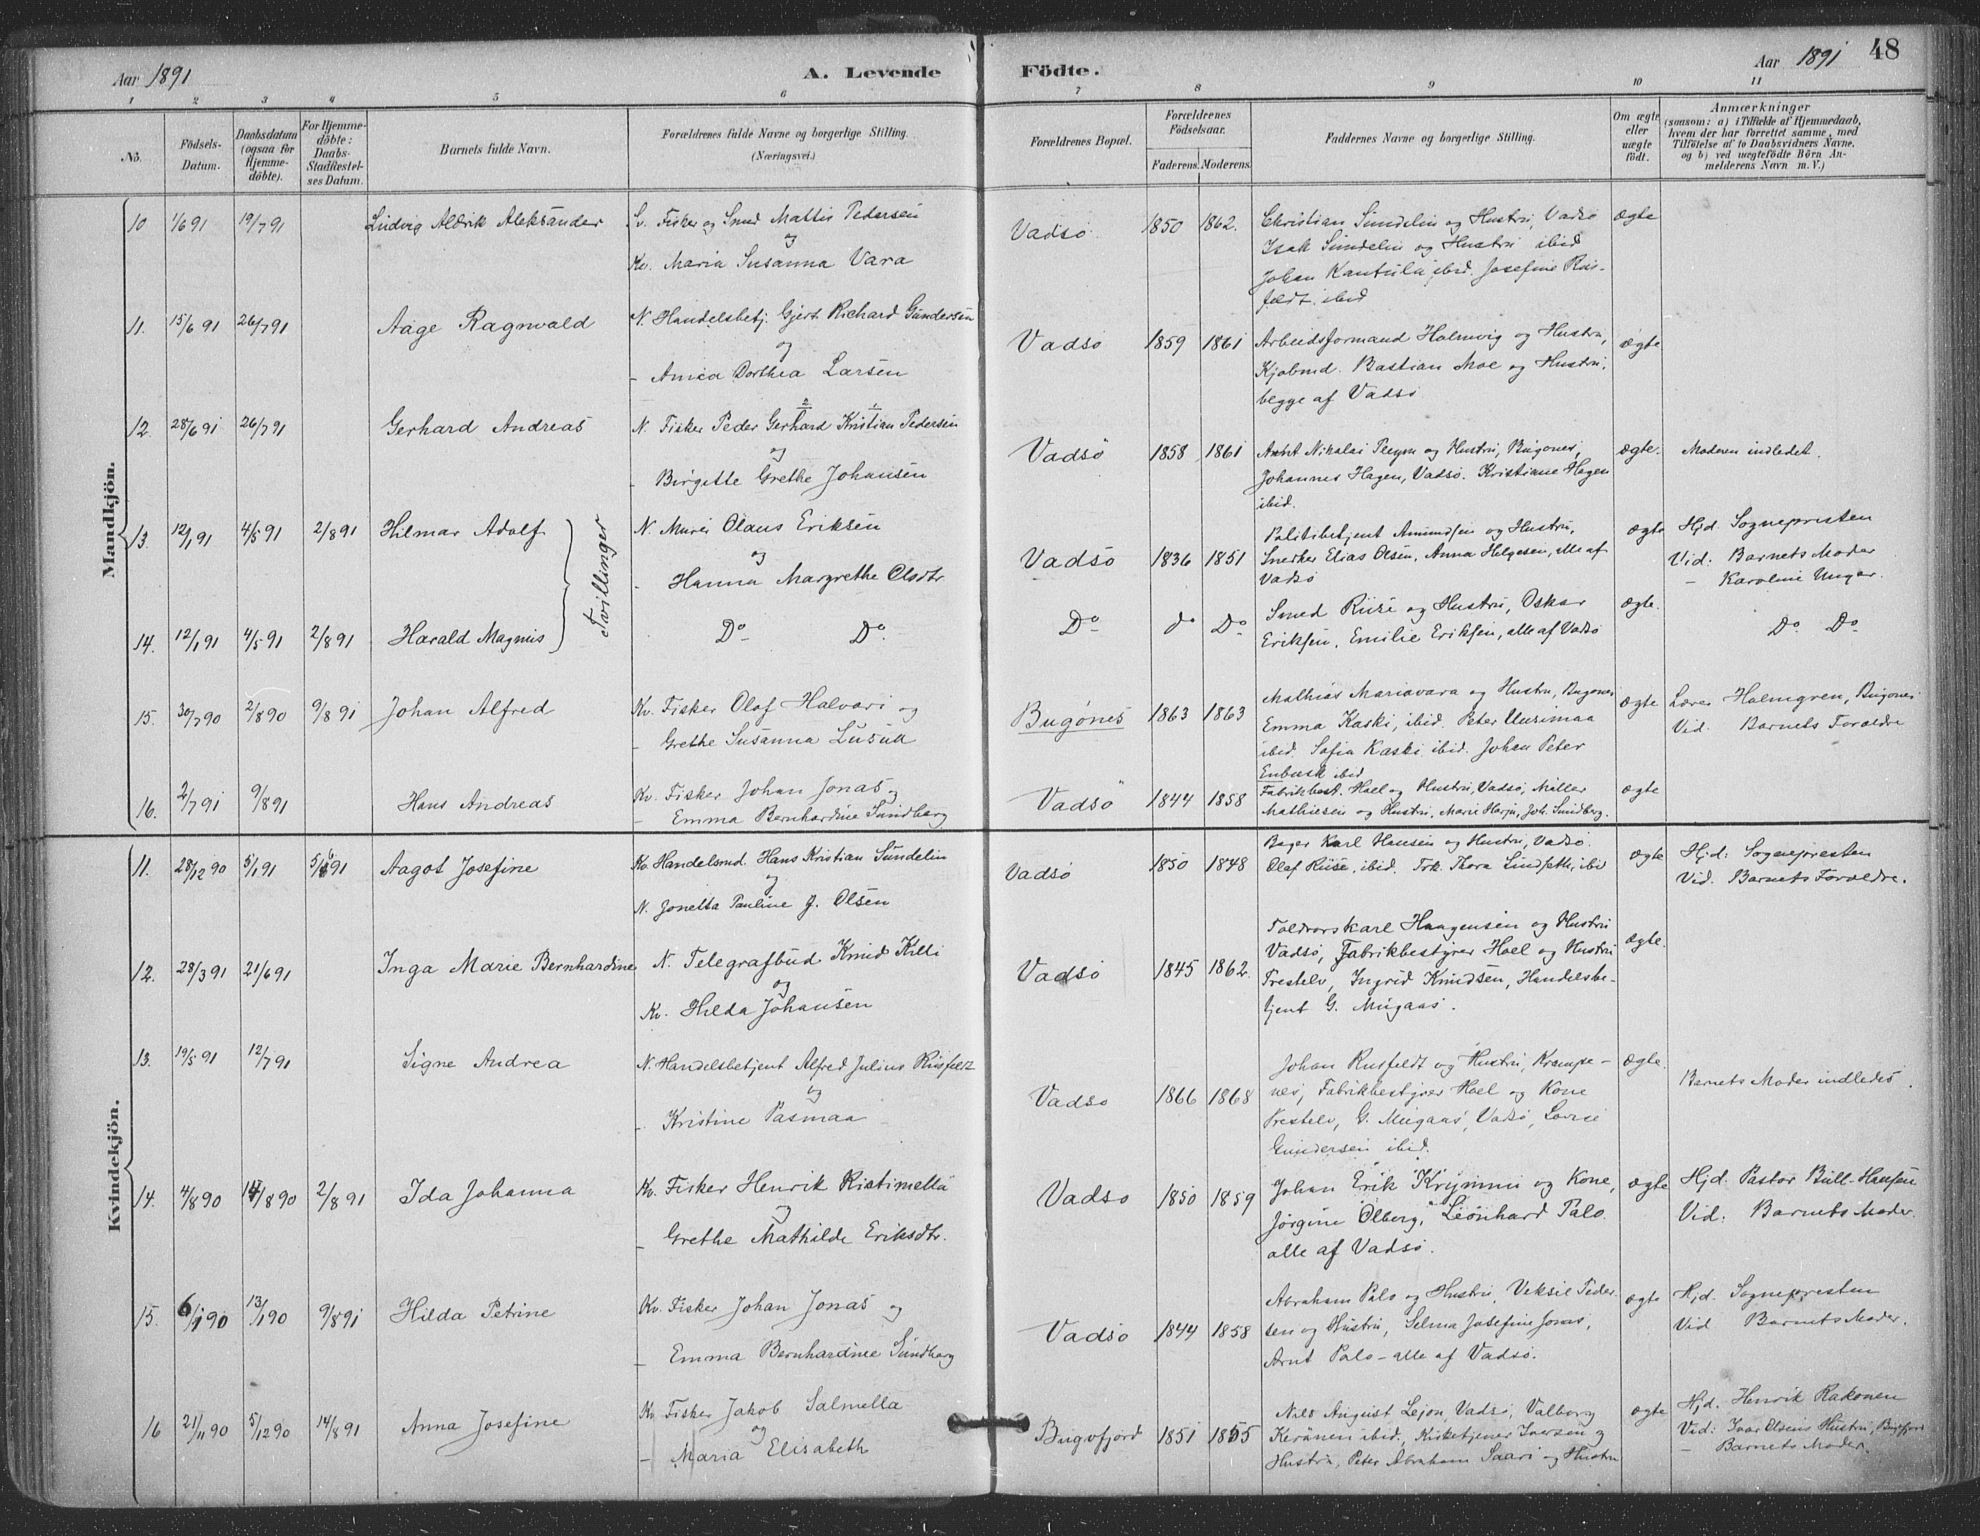 Aar 1891
A. Levende
Födte.
Aar 1891
48
1 2 3 4 5 6 7 8 9 10 11
No.
Födsels-
Datum.
Daabsdatum
(ogsaa for
Hjemme-
döbte).
For Hjemme-
döbte:
Daabs-
Stadfæstel-
ses Datum.
Barnets fulde Navn.
Forældrenes fulde Navne og borgerlige Stilling.
(Næringsvei.)
Forældrenes Bopæl.
Forældrenes
Födselsaar.
Faderens. Moderens.
Faddernes Navne og borgerlige Stilling.
Om ægte
eller
uægte
födt.
Anmærkninger
(saasom: a) i Tilfælde af Hjemmedaab,
hvem der har forrettet samme, med
Tilföielse af to Daabsvidners Navne,
og b) ved uægtefödte Börn An-
melderens Navn m. V.)
Mandkjön.
10 1/6 91 19/7 91 Ludvig Aldrik Aleksander
Sv. Fisker og Smed Mattis Pedersen
og
Kv. Maria Susanna Vara
Vadsö 1850 1862.
Christian Sundelin og Hustru, Vadsö
Isak Sundelin og Hustru ibid
Johan Kantula ibid. Josefine Ris-
feldt ibid
ægte
11. 15/6 91 26/7 91 Aage Ragnvald
N. Handelsbetj. Gjert Richard Gundersen
og
– Anica Dorthea Larsen
Vadsö 1859 1861
Arbeidsformand Holmvig og Hustru,
Kjöbmd. Bastian Moe og Hustru,
begge af Vadsö
ægte
12. 28/6 91 26/7 91 Gerhard Andreas
N. Fisker Peder Gerhard Kristian Pedersen
og
– Birgitte Grethe Johansen
Vadsö 1858 1861
Arnt Nikolai Pleym og Hustru, Bugönes,
Johannes Hagen, Vadsö. Kristiane Hagen
ibid.
ægte.
Moderen indledet.
13. 12/1 91 4/5 91 2/8 91 Hilmar Adolf
Tvillinger
N. Murer Olaus Eriksen
og
– Hanna Margrethe Olsdtr.
Vadsö 1836 1851
Politibetjent Amundsen og Hustru,
Snedker Elias Olsen, Anna Helgesen, alle af
Vadsö
ægte
Hjd. Sognepresten
Vid: Barnets Moder
– Karoline Unger.
14. 12/1 91 4/5 91 2/8 91 Harald Magnus
Do Do
Do do Do
Smed Riise og Hustru, Oskar
Eriksen, Emilie Eriksen, alle af Vadsö
ægte.
Do Do
15. 30/7 90 2/8 90 9/8 91 Johan Alfred
Kv. Fisker Olaf Halvari og
– Grethe Susanna
Bugönes 1863 1863
Mathias Mariavara og Hustru, Bugönes
Emma Kaski, ibid. Peter Uusimaa
ibid. Sofia Kaski ibid. Johan Peter
Enbusk ibid
ægte
Lærer Holmgren, Bugönes
Vid. Barnets Forældre
16. 2/7 91 9/8 91 Hans Andreas
Kv. Fisker Johan Jonas og
– Emma Bernhardine Sundberg
Vadsö 1844 1858
Fabrikbest. Hoel og Hustru, Vadsö, Möller
Mathiesen og Hustru, Marie Harju, Joh. Sundberg.
ægte
Kvindekjön.
11. 28/12 90 5/1 91 91 Aagot Josefine
Kv. Handelsmd. Hans Kristian Sundelin
og
N. Jonetta Pauline J. Olsen
Vadsö 1850 1848
Bager Karl Hansen og Hustru, Vadsö.
Olaf Riise, ibid. Frk. Thora Lindseth, ibid
ægte
Hjd: Sognepresten
Vid. Barnets Forældre.
12. 28/3 91 21/6 91 Inga Marie Bernhardine
N. Telegrafbud Knud Killi
og
Kv. Hilda Johansen
Vadsö 1845 1862.
Toldvorskarl Haagensen og Hustru
Vadsö, Fabrikbestyrer Hoel og Hustru
Prestelv, Ingrid Knudsen, Handelsbe-
tjent G. Mugaas.
ægte.
13. 19/5 91 12/7 91 Signe Andrea
N. Handelsbetjent Alfred Julius Risfeldt
og
– Kristine Pasmaa
Vadsö 1866 1868
Johan Rusfeldt og Hustru, Krampe-
nes, Fabrikbestyrer Hoel og Kone
Prestelv, G. Mugaas, Vadsö, Lovise
Gundersen ibid.
ægte.
Barnets Moder indledes.
14. 4/8 90 14/8 90 2/8 91 Ida Johanna
Kv. Fisker Henrik Ristimella
og
– Grethe Mathilde Eriksdtr.
Vadsö 1850 1859
Johan Erik Krymmi og Kone,
Jörgine Olberg, Leonhard Palo
alle af Vadsö.
ægte
Hjd. Pastor Bull-Hansen
Vid: Barnets Moder.
15. 6/1 90 13/1 90 9/8 91 Hilda Petrine
Kv. Fisker Johan Jonas og
– Emma Bernhardine Sundberg
Vadsö 1844 1858
Abraham Palo og Hustru, Veksil Peder-
sen og Hustru, Selma Josefine Jonas,
Arnt Palo – alle af Vadsö.
ægte
Hjd. Sognepresten
Vid Barnets Moder.
16 21/11 90 5/12 90 14/8 91 Anna Josefine
Kv. Fisker Jakob Salmella
og
– Maria Elisabeth
Bugöfjord 1851 1855
Nils August Lejon, Vadsö, Valborg
Keränen ibid., Kirketjener Iversen og
Hustru, Peter Abraham Saari og Hustru
ægte
Hjd. Henrik Rakonen
Vid: Ivar Olsens Hustru, Bugfjord
– Barnets Moder.